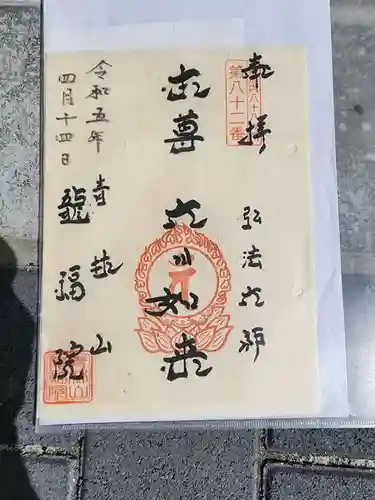 奉拝
第八十二番
弘法大師
本尊 大日如来
令和五年
四月十四日
青林山
龍福院